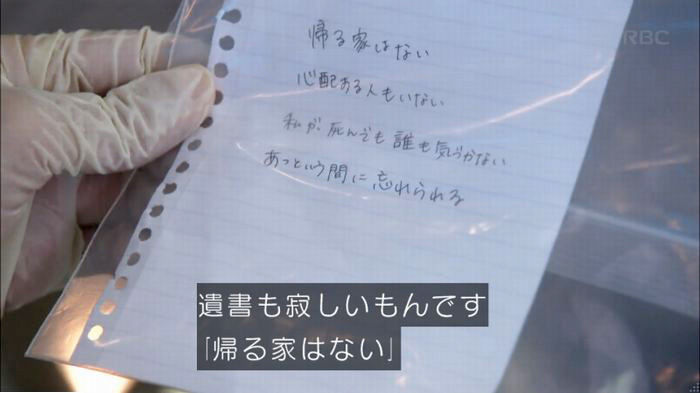 RBC
帰る家はない
心配ある人もいない
私が死んでも誰も気づかない
あっという間に忘れられる
遺書も寂しいもんです
「帰る家はない」